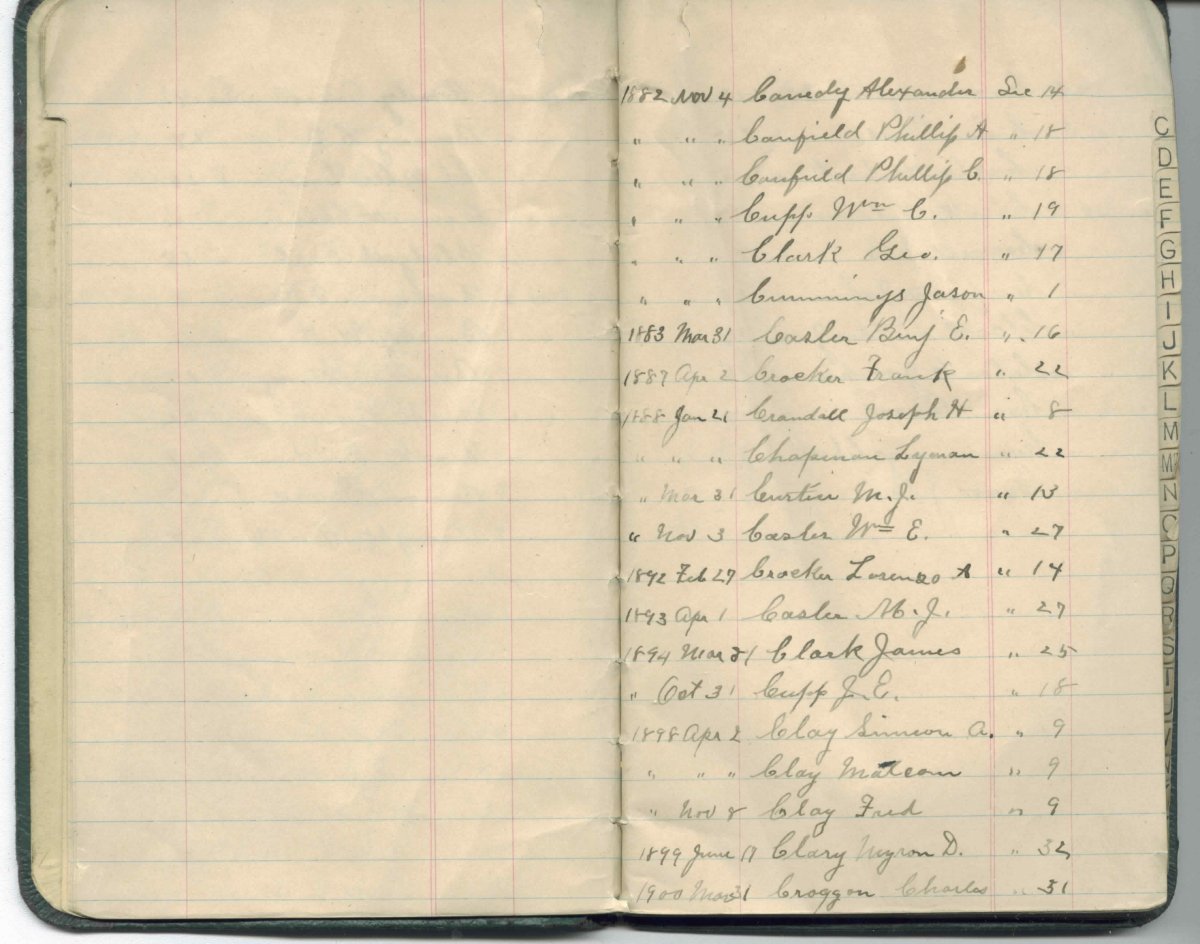 1882 Nov 4 Canedy Alexander Sec 14
" " " Canfield Phillip A " 18
" " " Canfield Phillip C. " 18
" " " Cupp Wm C. " 19
" " " Clark Geo. " 17
" " " Cummings Jason " 1
1883 Mar 31 Casler Benj E. " 16
1887 Apr 2 Crocker Frank " 22
1888 Jan 21 Crandall Joseph H " 8
" " " Chapman Lyman " 22
" Mar 31 Curtin M. J. " 13
" Nov 3 Casler Wm E. " 27
1892 Feb 27 Crocker Lorenzo A " 14
1893 Apr 1 Casler M. J. " 27
1894 Mar 31 Clark James " 25
" Oct 31 Cupp J. E. " 18
1898 Apr 2 Clay Simeon A. " 9
" " " Clay Malcom " 9
" Nov 8 Clay Fred " 9
1899 June 17 Clary Myron D. " 32
1900 Mar 31 Croggon Charles " 31
C
D
E
F
G
H
I
J
K
L
M
Mc
N
O
P
Q
R
S
T